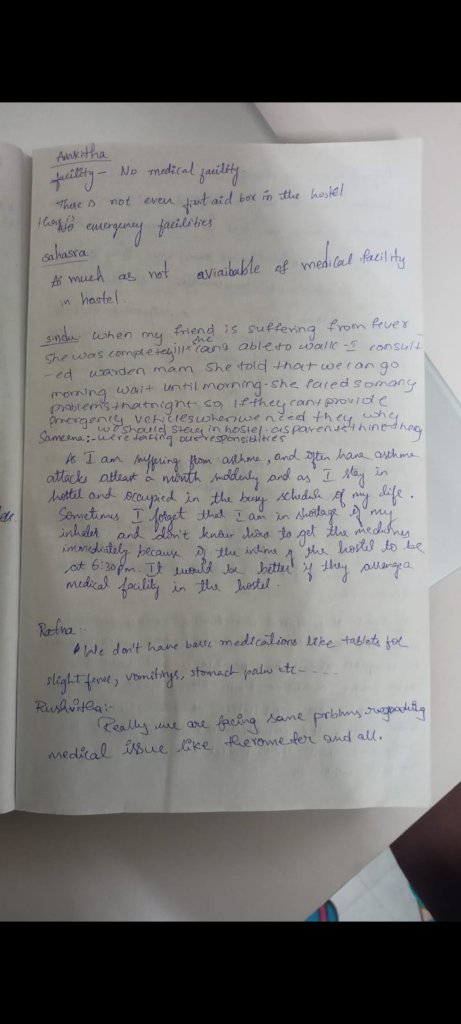 Ankitha
facility - No medical facility.
There is not even first aid box in the hostel
there is No emergency facilities
sahasra
As much as not aviaibable of medical facility
in hostel.
sindu when my friend is suffering from fever
she was completely ill she can't able to walk - I consult
-ed warden mam she told that we can go
morning wait until morning. she faced so many
problems that night, so, If they can't provide
emergency vehicles when we need they why
we should stay in hostel. as parents thinethay
Sameena:- we're taking our responsibilities
As I am suffering from asthma, and often have asthma
attacks atleast a month suddenly and as I stay in
hostel and occupied in the busy schedule of my life.
Sometimes I forget that I am in shortage of my
inhaler and don't know how to get the medicines
immediately because of the intime of the hostel to be
at 6:30pm. It would be better if they arrange a
medical facility in the hostel.
Ratna:-
We don't have basic medications like tablets for
slight fever, vomitings, stomach pain etc-----
Rushvitha:-
Really we are facing some prblms regarding
medical issue like therometer and all.